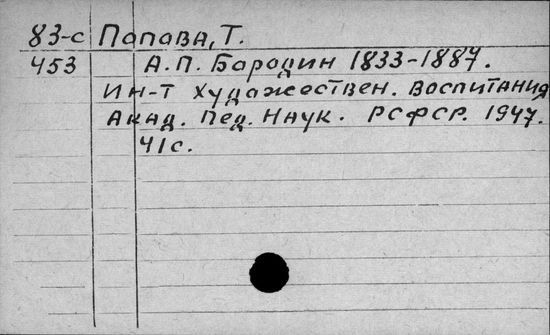 83-с Папава, Т.
453 А.П. Бородин 1833-1887.
Ин-т художествен. воспитания
Акад. Пед. Наук. РСФСР. 1947.
41с.